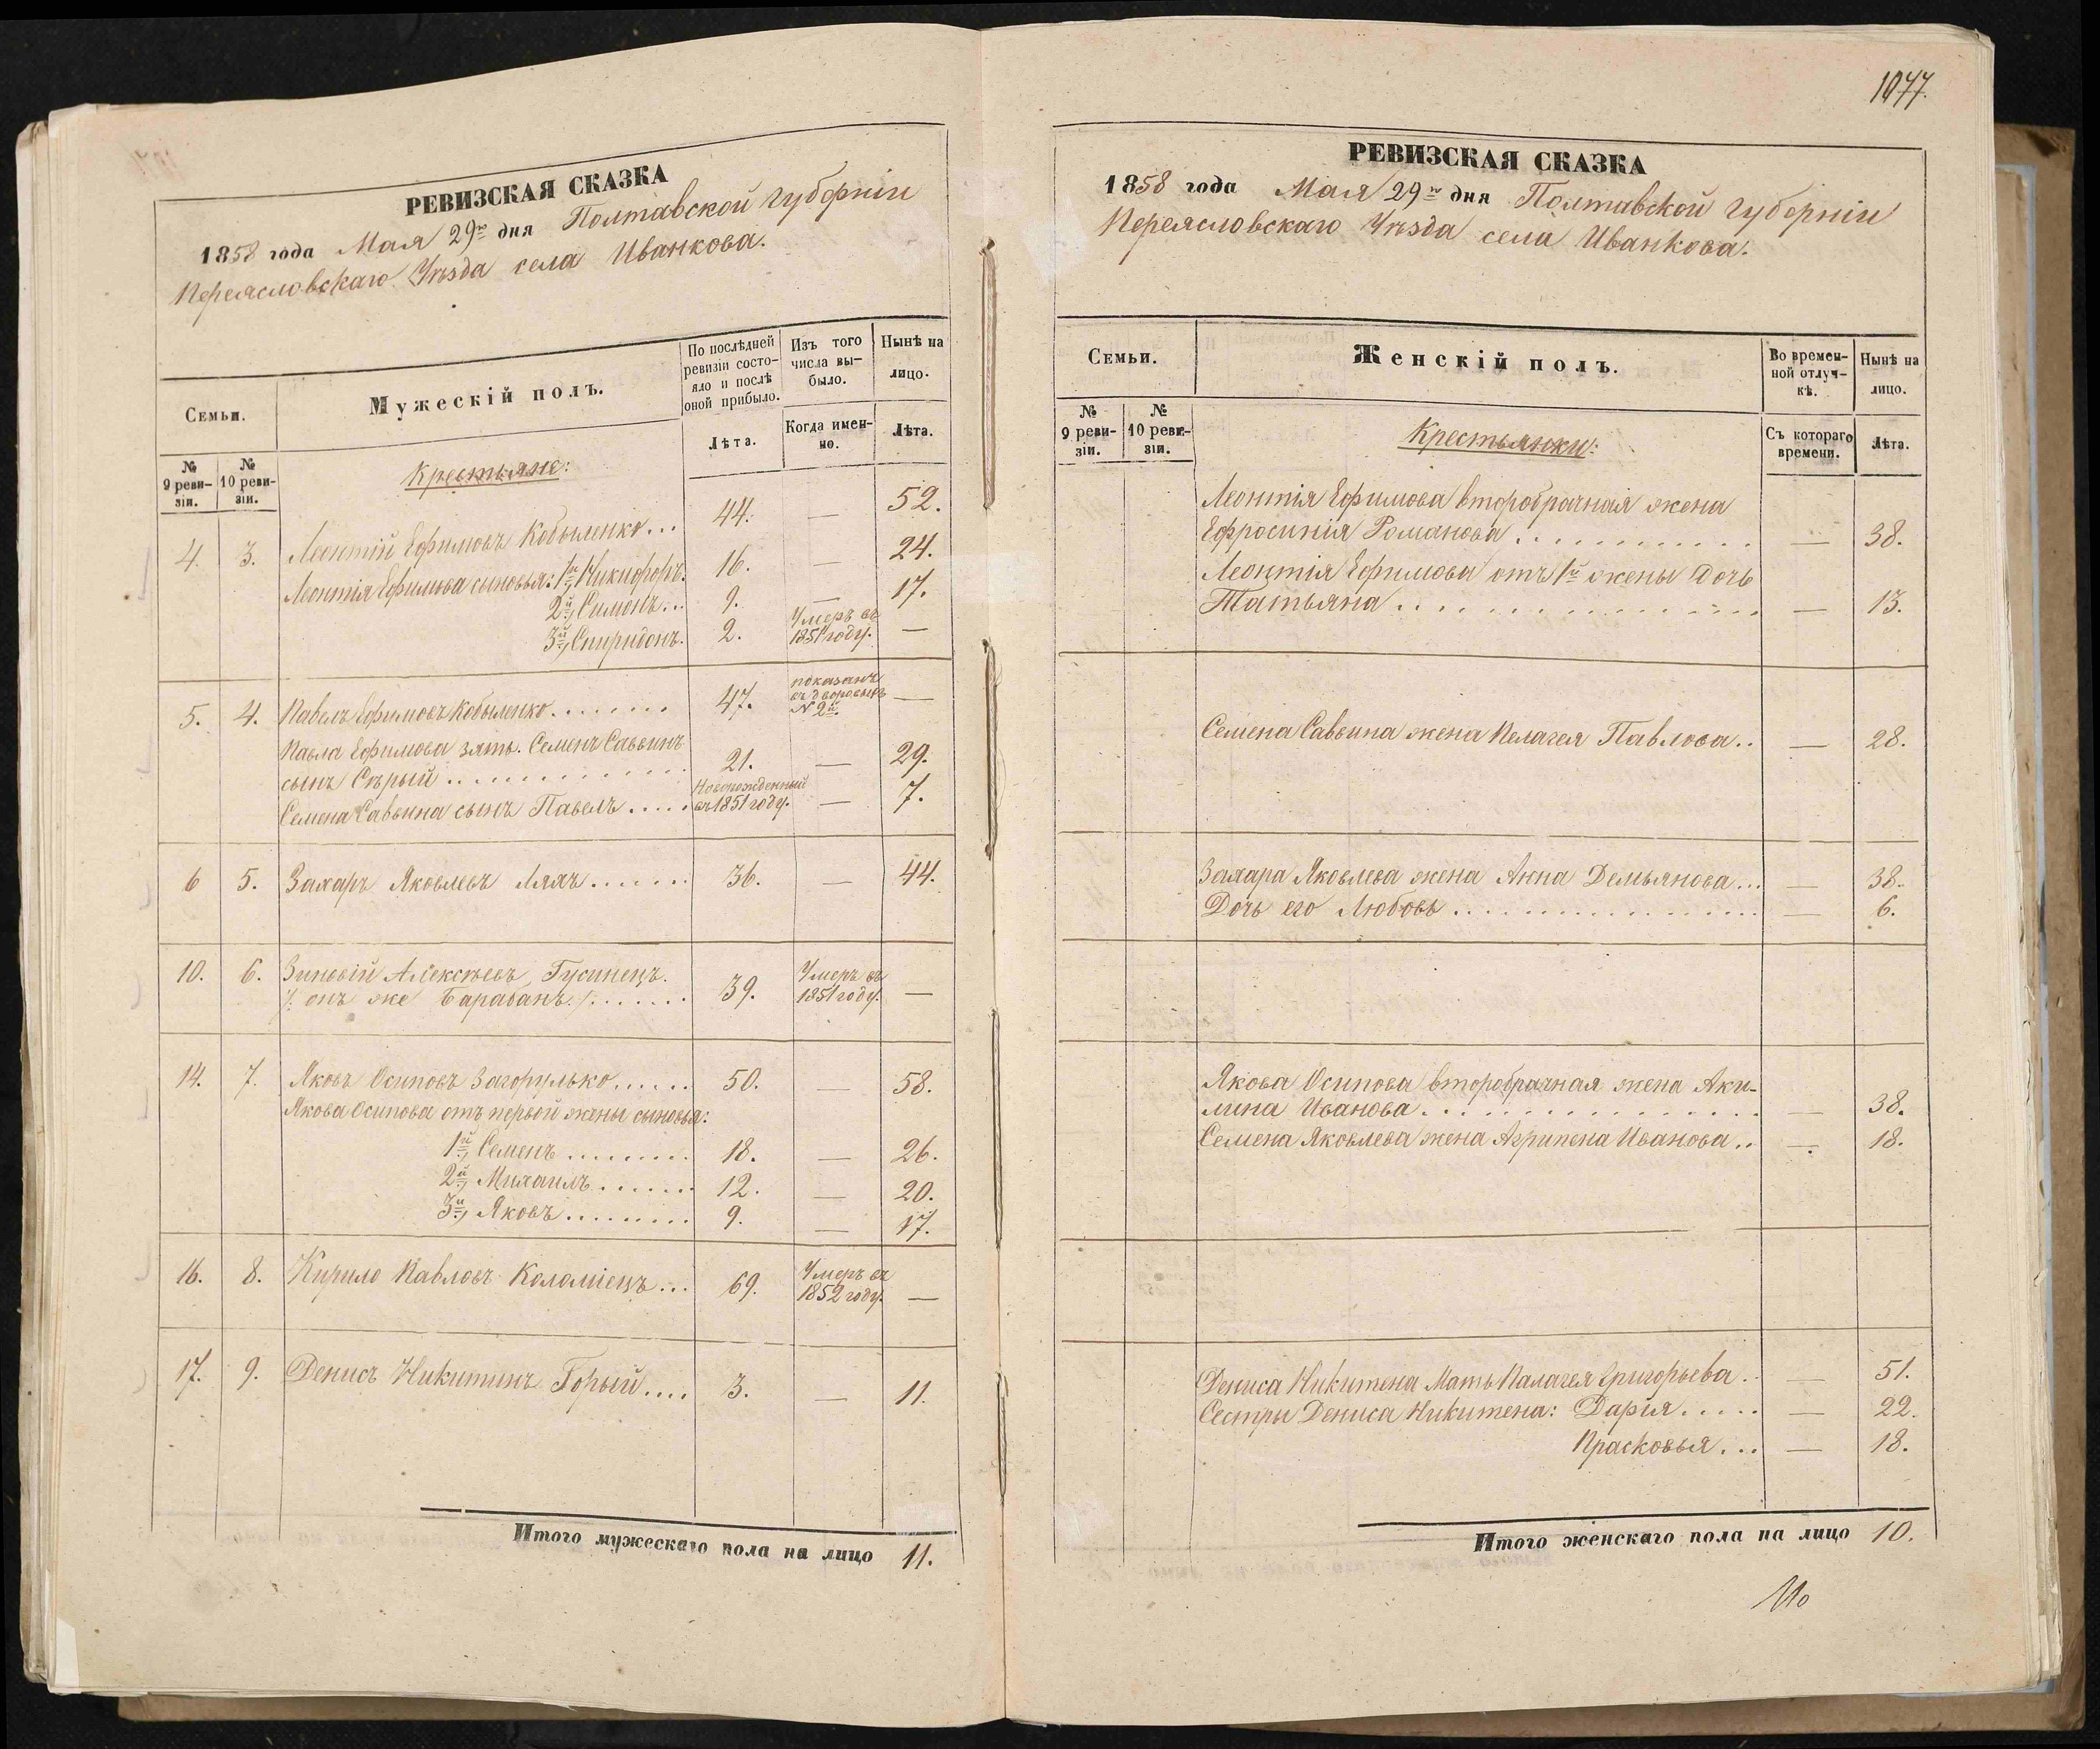 1077.
РЕВИЗСКАЯ СКАЗКА
1858 года Мая 29го дня Полтавской губерніи
Переясловскаго Уѣзда села Иванкова.
Семьи.
Мужескій полъ.
По послѣдней ревизіи состояло и послѣ оной прибыло.
Изъ того числа выбыло.
Нынѣ на лицо.
№ 9 ревизіи.
№ 10 ревизіи.
Лѣта.
Когда именно.
Лѣта.
Крестьяне:
4. 3. Леонтій Ефимовъ Кобыленко... 44. — 52.
Леонтія Ефимова сыновья: 1й, Никифоръ. 16. — 24.
2й, Симонъ... 9. — 17.
3й, Спиридонъ. 2. Умеръ въ 1851 году. —
5. 4. Павелъ Ефимовъ Кобыленко........ 47. показанъ въ дворовыхъ № 2й. —
Павла Ефимова зять. Семенъ Саввинъ
сынъ Сѣрый .............. 21. — 29.
Семена Саввина сынъ Павелъ ..... Новорожденный въ 1851 году. — 7.
6 5. Захаръ Яковлевъ Ляхъ....... 36. — 44.
10. 6. Зиновій Алексѣевъ Гусинецъ.
/: онъ же Барабанъ :/....... 39. Умеръ въ 1851 году. —
14. 7. Яковъ Осиповъ Загорулько...... 50. — 58.
Якова Осипова отъ первой жены сыновья:
1й, Семенъ ......... 18. — 26.
2й, Михаилъ ....... 12. — 20.
3й, Яковъ......... 9. — 17.
16. 8. Кирило Павловъ Коломіецъ... 69. Умеръ въ 1852 году. —
17. 9. Денисъ Никитинъ Горый.... 3. — 11.
Итого мужескаго пола на лицо 11.
РЕВИЗСКАЯ СКАЗКА
1858 года Мая 29го дня Полтавской губерніи
Переясловскаго Уѣзда села Иванкова.
Семьи.
Женскій полъ.
Во временной отлучкѣ.
Нынѣ на лицо.
№ 9 ревизіи.
№ 10 ревизіи.
Съ котораго времени.
Лѣта.
Крестьянки:
Леонтія Ефимова второбрачная жена
Ефросинія Романова ............ — 38.
Леонтія Ефимова отъ 1й жены Дочь
Татьяна .................. — 13.
Семена Саввина жена Пелагея Павлова.. — 28.
Захара Яковлева жена Анна Демьянова... — 38.
Дочь его Любовь .................. — 6.
Якова Осипова второбрачная жена Аки-
лина Иванова .................. — 38.
Семена Яковлева жена Агрипена Иванова.. — 18.
Дениса Никитена Мать Палагея Григорьева.. — 51.
Сестры Дениса Никитена: Дарія..... — 22.
Прасковья... — 18.
Итого женскаго пола на лицо 10.